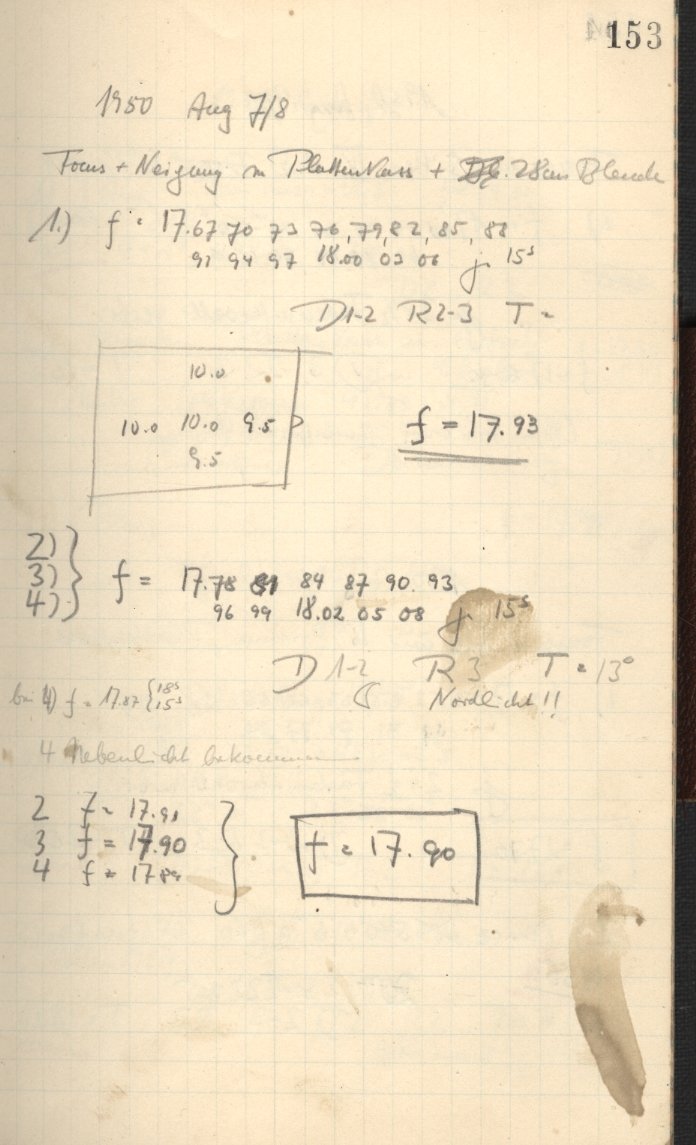 153
1950 Aug 7/8
Focus + Neigung m Plattenkass + 28cm Blende
1.) f = 17.67 70 73 76, 79, 82, 85, 88
91 94 97 18.00 03 06 je 15s
D1-2 R2-3 T =
10.0
10.0 10.0 9.5
9.5
f = 17.93
2)
3)
4)
f = 17.78 81 84 87 90. 93
96 99 18.02 05 08 je 15s
D 1-2 R3 T = 13°
bei 4) f = 17.87 { 18s
15s
Nordlicht!!
4 Nebenlicht bekommen
2 f = 17.91
3 f = 17.90
4 f = 17.89
f = 17.90